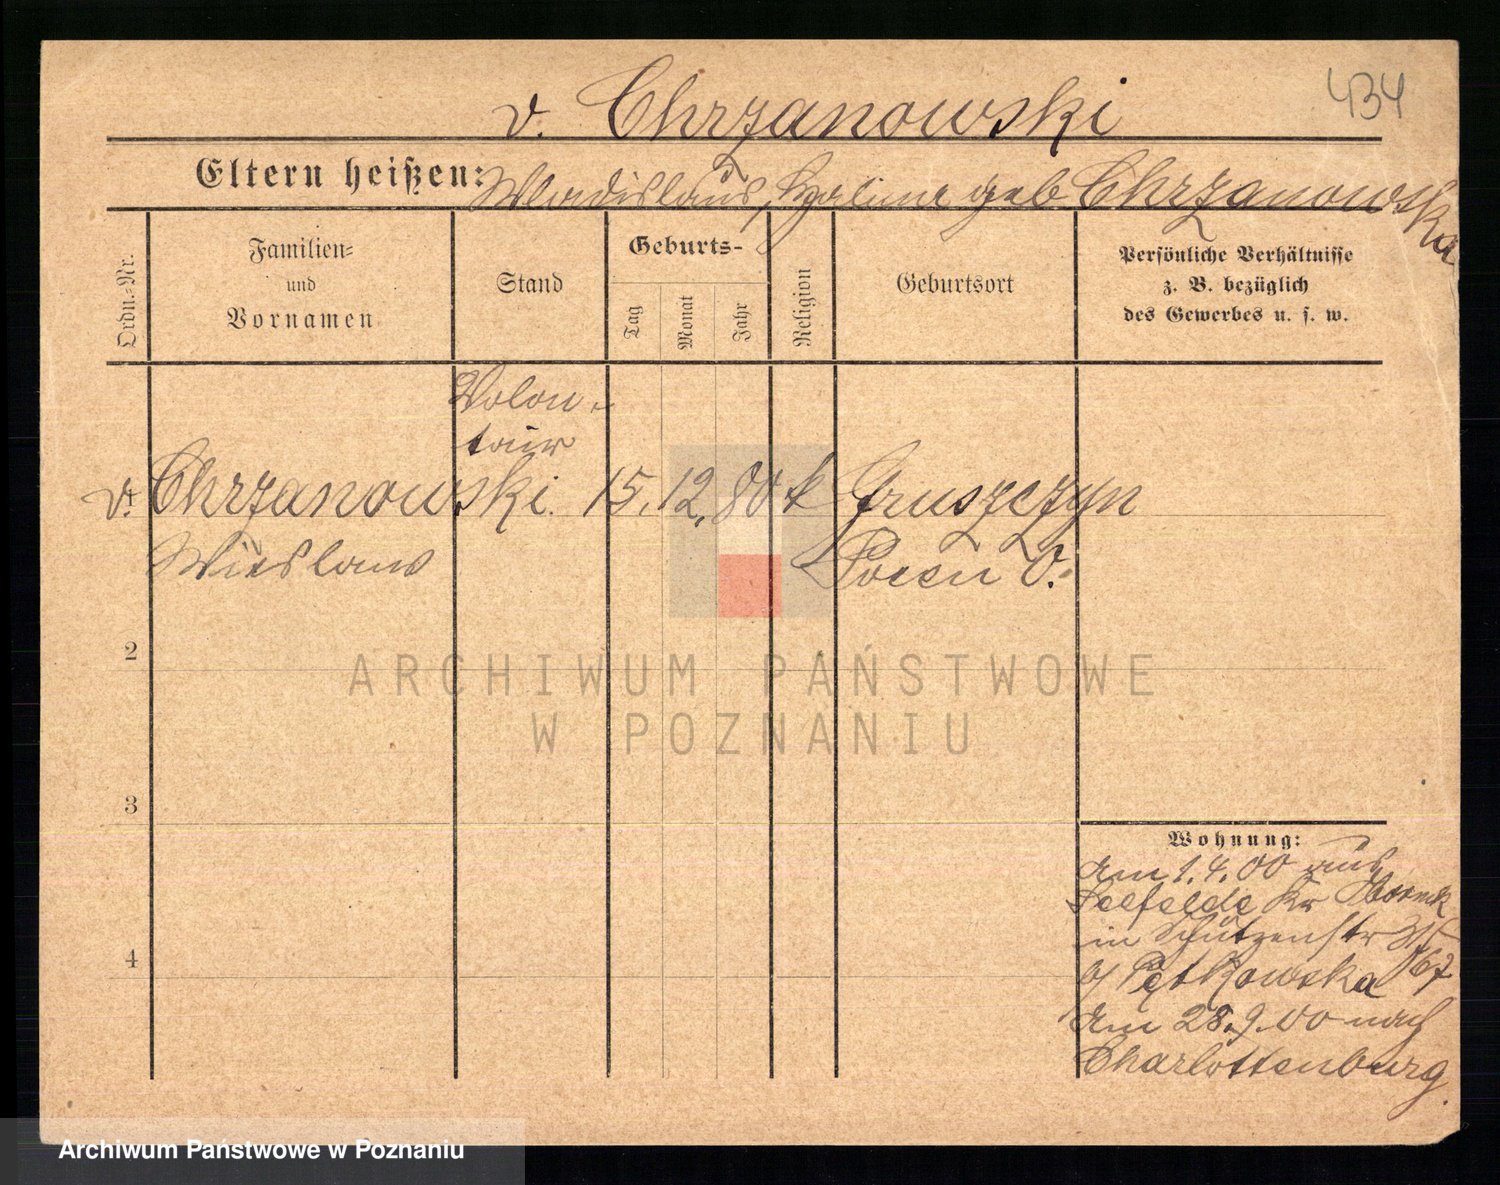 434
v. Chrzanowski
Eltern heißen: Wladislaus, Halina geb Chrzanowska
Ordn.-Nr.
Familien-
und
Vornamen
Stand
Geburts-
Tag
Monat
Jahr
Religion
Geburtsort
Persönliche Verhältnisse
z. B. bezüglich
des Gewerbes u. s. w.
Volon-
tair
v. Chrzanowski. 15. 12. 80 k Gruszczyn
Wieslaus Posen O.
2
ARCHIWUM PAŃSTWOWE
W POZNANIU
3
Wohnung:
Am 1.4.00 aus
Seefelde Kr
in Schützenstr 31
b/ Pętkowska 167
Am 28.9.00 nach
4
Charlottenburg.
Archiwum Państwowe w Poznaniu